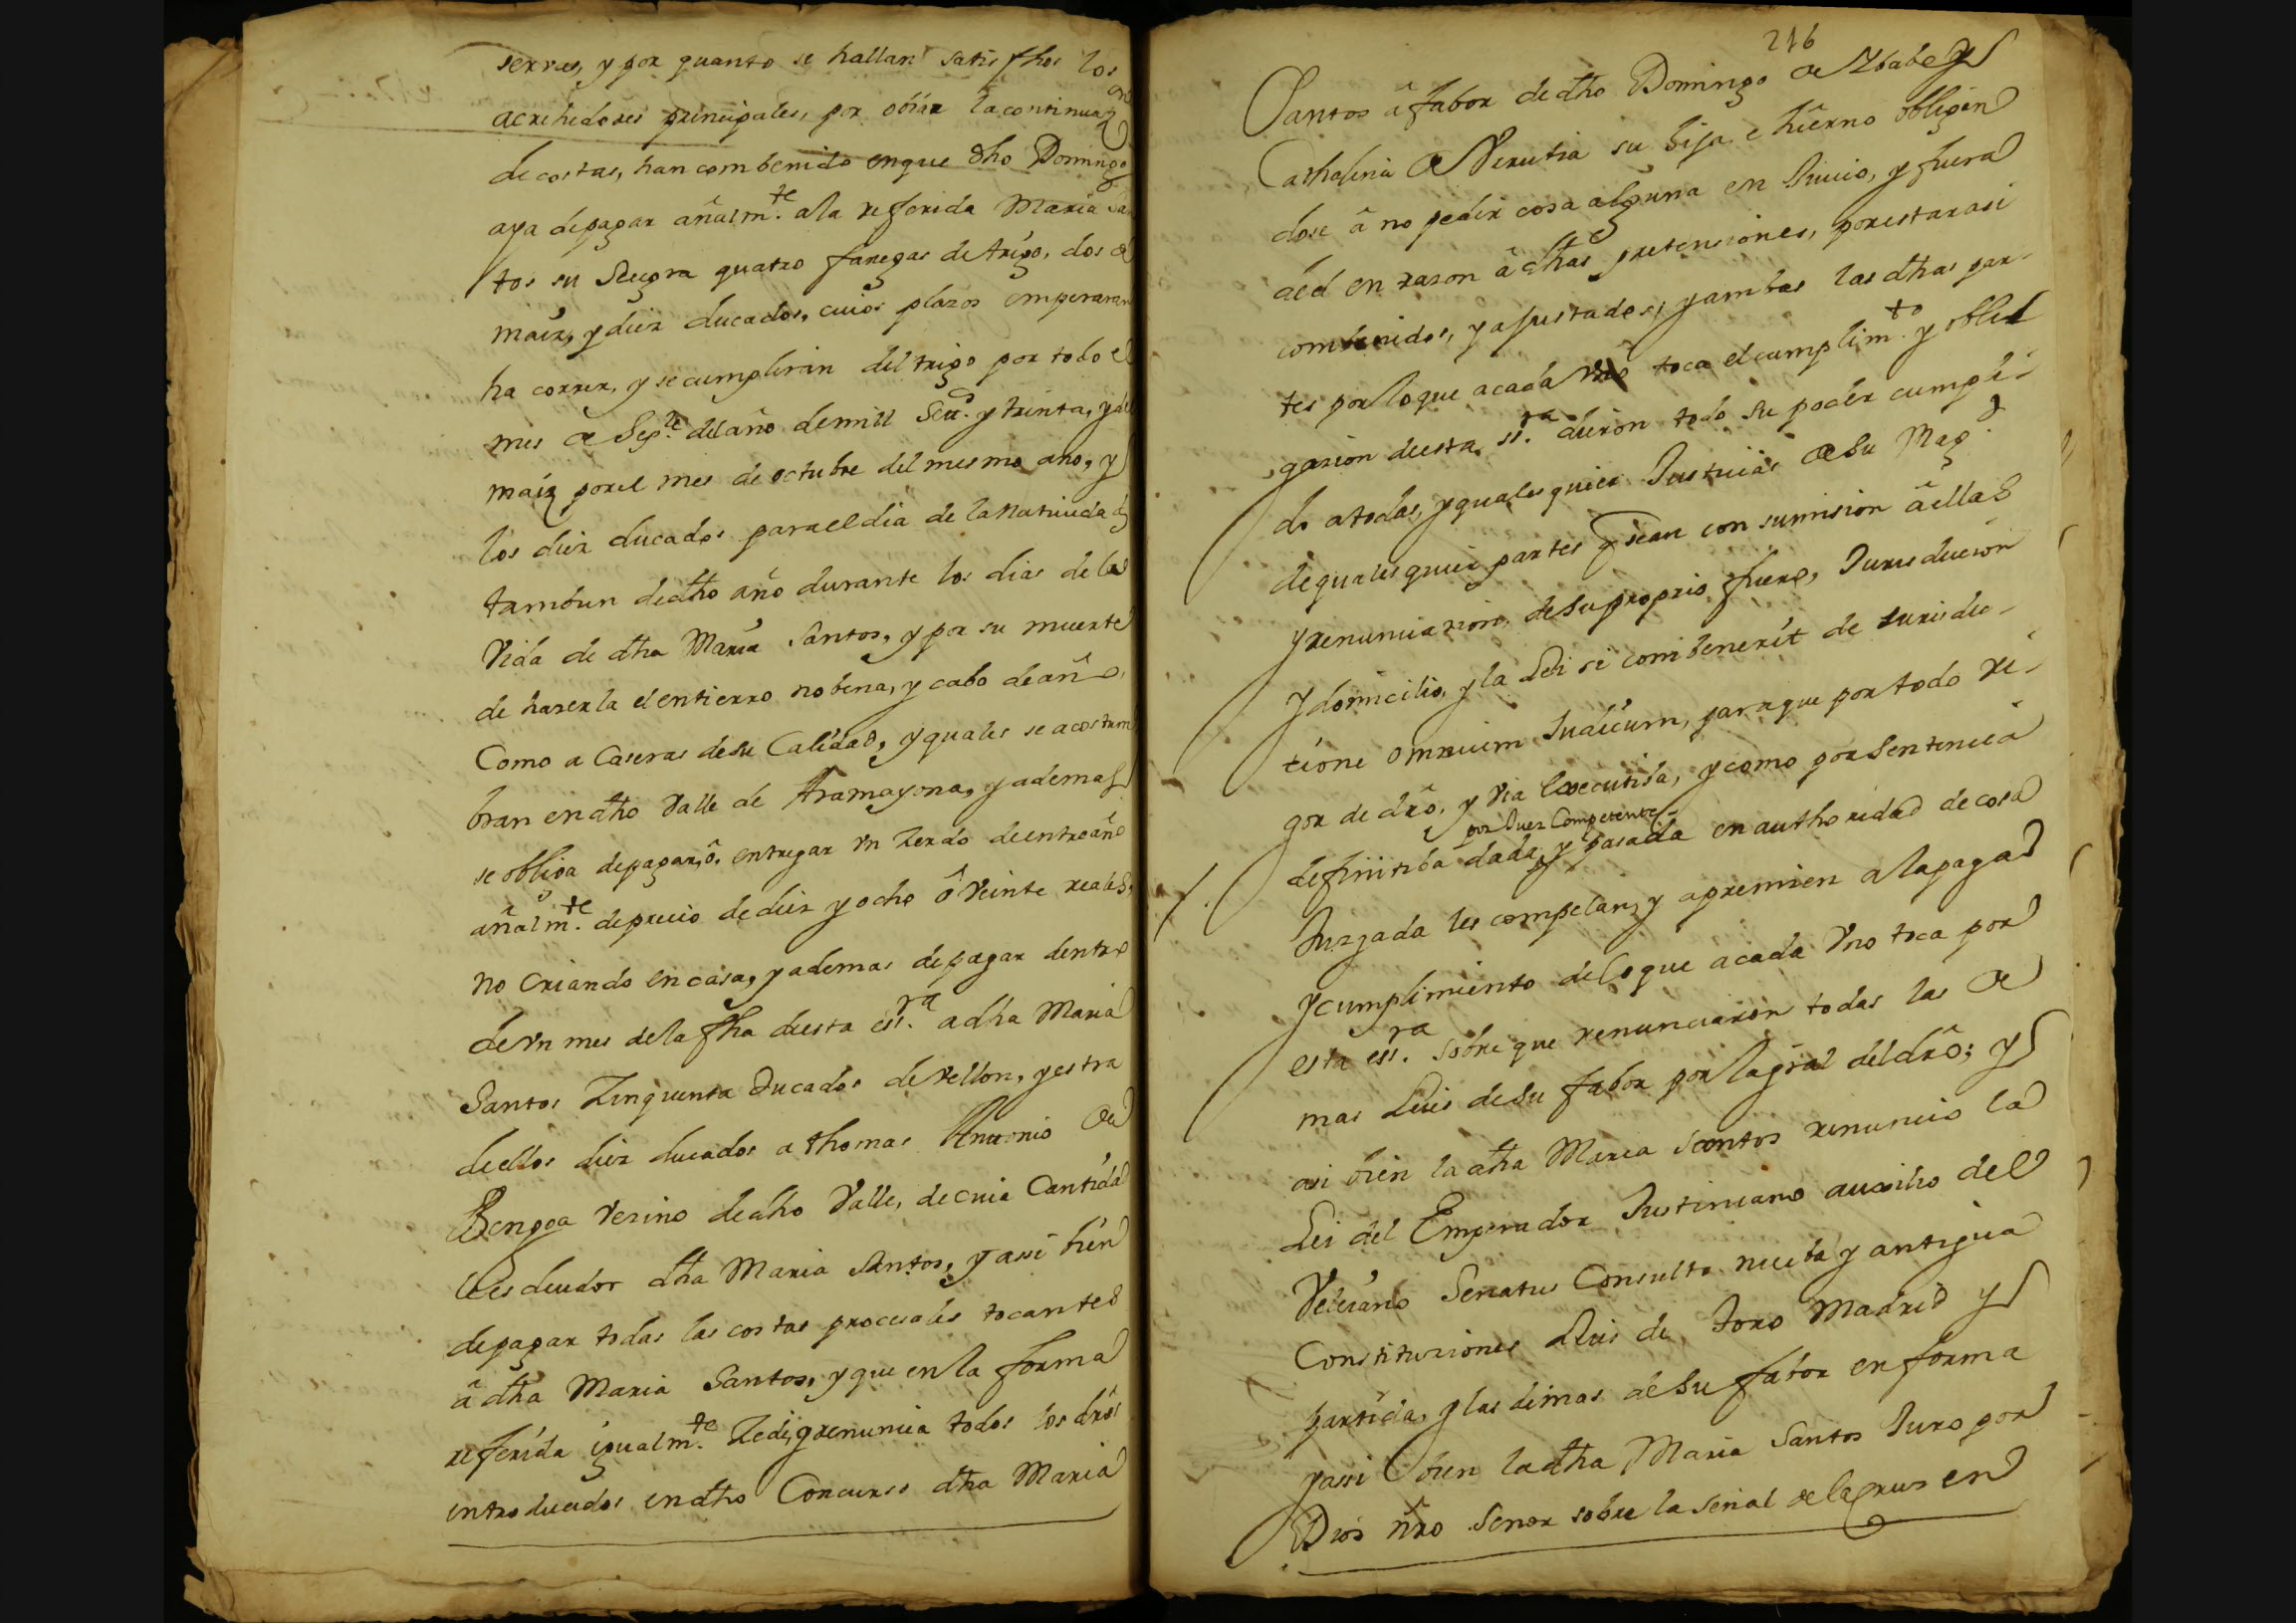 serras, y por quanto se hallan satisfhos los
acrehedores prinzipales, por obiar la continuaz.on
de costas, han combenido en que dho Domingo
aya de pagar añalm.te a la referida Maria San
tos su Suegra quatro fanegas de trigo, dos de
maiz, y diez ducados, cuios plazos empezaran
ha correr, y se cumpliran del trigo por todo el
mes de Sep.re del año de mill Sett.s y treinta, y del
maiz por el mes de octubre del mesmo año, y
los diez ducados para el dia de la Natiuidad
tambien de dho año durante los dias de la
Vida de dha Maria Santos, y por su muerte
de hazerla el entierro nobena, y cabo de año,
Como a Caseras de su Calidad, y quales se acostum
bran en dho Valle de Aramayona, y ademas
se obliga de pagar, ô entregar vn zerdo de entreaño
añalm.te de precio de diez y ocho ô Veinte reales,
no criando en casa, y ademas de pagar dentro
de vn mes de la fha de esta ess.ra a dha Maria
Santos Zinquenta Ducados de vellon, y estra
de ellos diez ducados a thomas Antonio de
Bengoa vezino de dho Valle, de cuia Cantidad
le es deudor dha Maria Santos, y assi bien
de pagar todas las costas procesales tocantes
â dha Maria Santos, y que en la forma
referida igualm.te Zede, y renuncia todos los dros
introducidos en dho Concurso dha Maria
216
Santos â fabor de dho Domingo de Ybabe y
Cathalina de Verutia su hija e hierno obligan
dose â no pedir cosa alguna en Juicio, y fuera
del en razon â dhas pretensiones, por estar asi
combenidos, y ajustados, y ambas las dhas par-
tes por lo que a cada vno toca el cumplim.to y obli
gazion de esta ss.ra dieron todo su poder cumpli-
do a todas, y qualesquier Justicias de su Mag.d
de qualesquier partes q sean con sumision â ellas
y renunciazion de su proprio fuero, Jurisdicion
y domicilio, y la Lei si combenerit de jurisdic-
tione omnium Judicum, para que por todo ri-
gor de dro, y via executiba, y como por Sentencia
por Juez Competente
definitiba dada, y pasada en authoridad de cosa
Juzgada les compelan, y apremien a la paga
y cumplimiento de lo que a cada Vno toca por
esta ess.ra sobre que renunciaron todas las de
mas Leies de su fabor por la gral del dro; y
asi bien la dha Maria Santos renuncio la
Lei del Emperador Justiniano auxilio del
Veleiano Senatus Consulto nueba y antigua
Constituziones Leies de Toro Madrid y
partida, y las demas de su fabor en forma
y assi bien la dha Maria Santos Juro por
Dios nro Señor sobre la señal de la cruz en